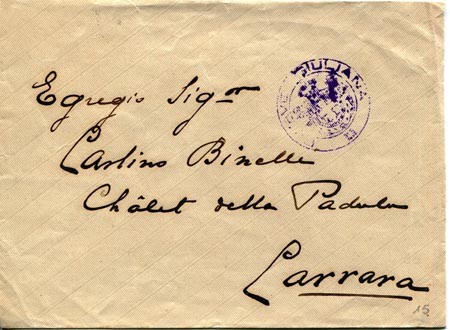 GIULIANA
Egregio Sig.or
Carlino Binelli
Châlet della Padula
Carrara
15